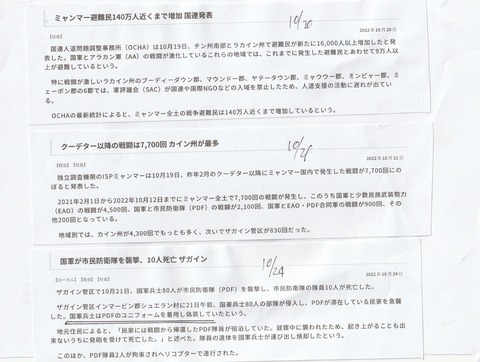 ミャンマー避難民140万人近くまで増加 国連発表
10/20
【政治】【社会】
2022 年 10 月 20 日
国連人道問題調整事務所（OCHA）は10月19日、チン州南部とラカイン州で避難民が新たに16,000人以上増加したと発
表した。国軍とアラカン軍（AA）の戦闘が激化しているこれらの地域では、これまでに発生した避難民とあわせて9万人以
上が避難しているという。
特に戦闘が激しいラカイン州のブーディーダウン郡、マウンドー郡、ヤテータウン郡、ミャウウー郡、ミンビャー郡、ミ
ェーボン郡の6郡では、軍評議会（SAC）が国連や国際NGOなどの入域を禁止したため、人道支援の活動に遅れが出てい
る。
OCHAの最新統計によると、ミャンマー全土の戦争避難民は140万人近くまで増加しているという。
クーデター以降の戦闘は7,700回 カイン州が最多
10/21
【政治】【社会】
2022 年 10 月 21 日
独立調査機関のISPミャンマーは10月19日、昨年2月のクーデター以降にミャンマー国内で発生した戦闘が7,700回にの
ぼると発表した。
2021年2月1日から2022年10月12日までにミャンマー全土で7,700回の戦闘が発生し、このうち国軍と少数民族武装勢力
（EAO）の戦闘が4,500回、国軍と市民防衛隊（PDF）の戦闘が2,100回、国軍とEAO・PDF合同軍の戦闘が900回、その
他200回となっている。
地域別では、カイン州が4,300回でもっとも多く、次いでザガイン管区が830回だった。
国軍が市民防衛隊を襲撃、10人死亡 ザガイン
10/24
【ローカル】【政治】【社会】
2022 年 10 月 24 日
ザガイン管区で10月21日、国軍兵士80人が市民防衛隊（PDF）を襲撃し、市民防衛隊の隊員10人が死亡した。
ザガイン管区インマービン郡シュエラン村に21日午前、国軍兵士80人の部隊が侵入し、PDFが滞在している民家を急襲
した。国軍兵士はPDFのユニフォームを着用し偽装していたという。
地元住民によると、「民家には戦闘から帰還したPDF隊員が宿泊していた。就寝中に襲われたため、起き上がることも出
来ないうちに発砲を受けて死亡した。」と述べた。隊員の遺体を国軍兵士が運び出し焼却したという。
このほか、PDF隊員2人が拘束されヘリコプターで連行された。